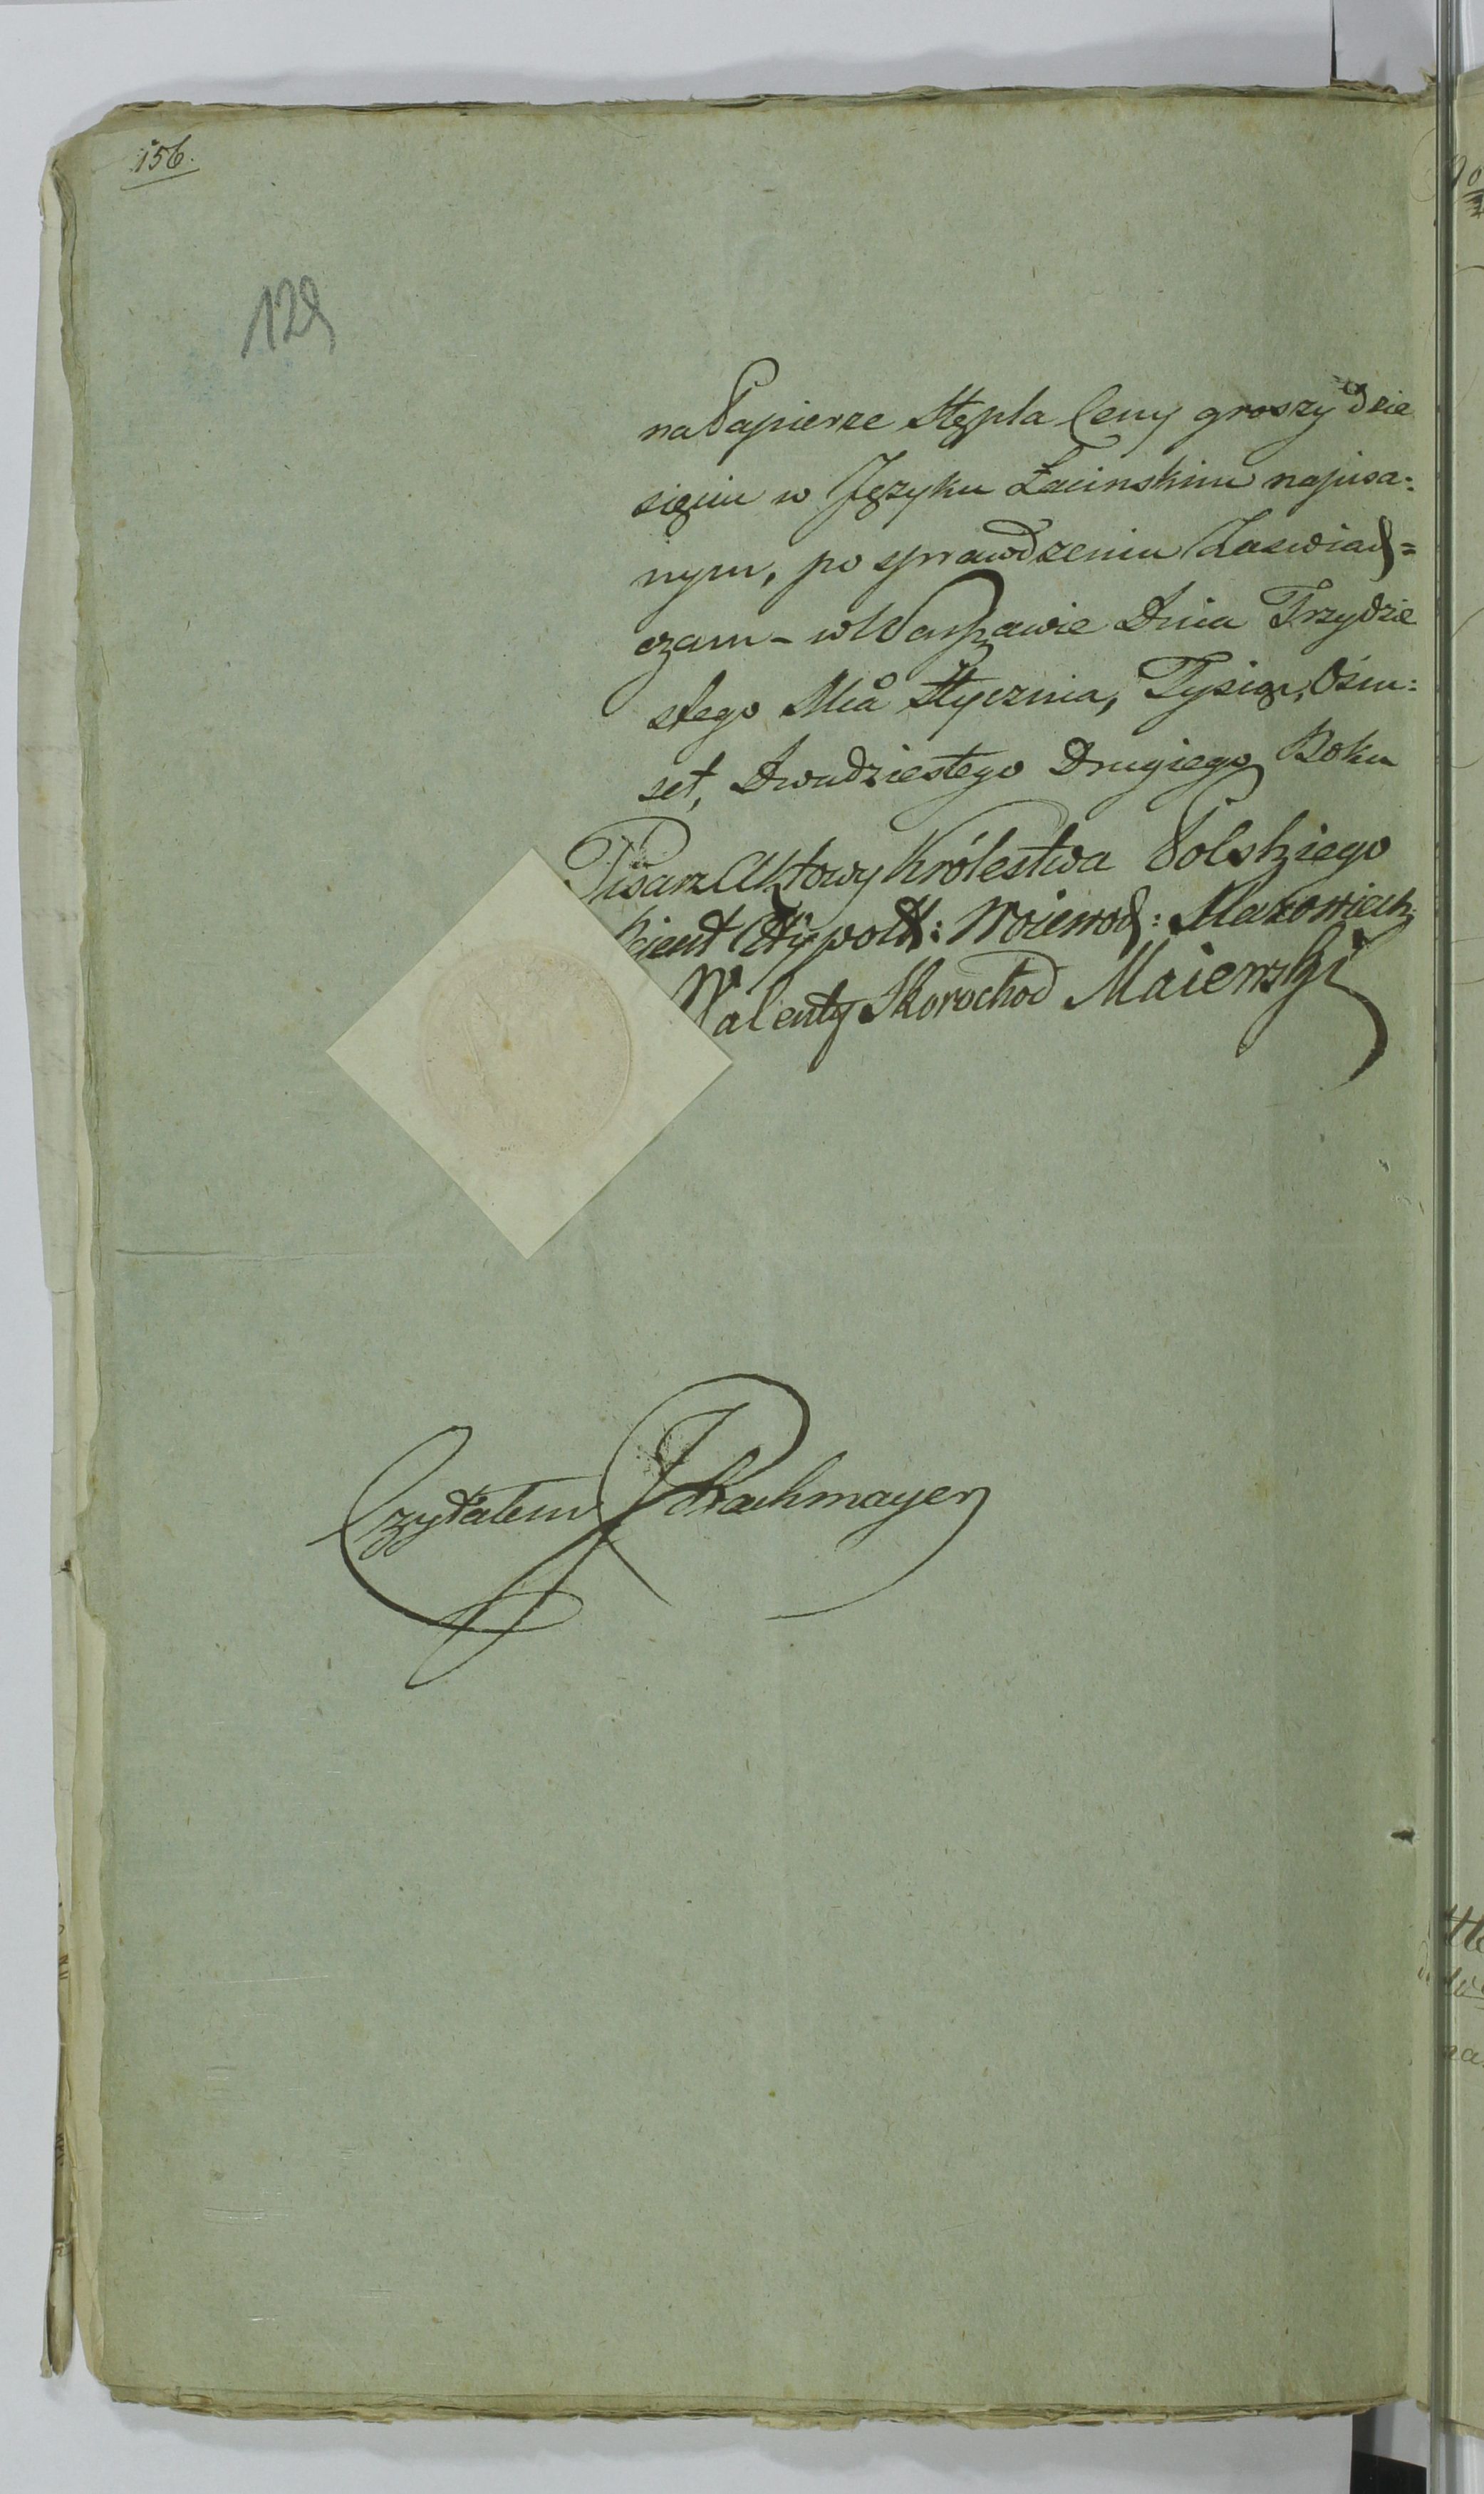 156.
129
na Papierze Stępla Ceny groszy dzie
sięciu w Języku Łacinskim napisa:
nym, po sprawdzeniu Zaswiad=
czam – w Warszawie Dnia Trzydzie
stego Mca Stycznia, Tysiąc, Ośm:
set, Dwudziestego Drugiego Roku
Pisarz Aktowy Królestwa Polskiego
Rejent Hypoth: Wojewod: Mazowieck
Walenty Skorochod Maiewski
Czytałem